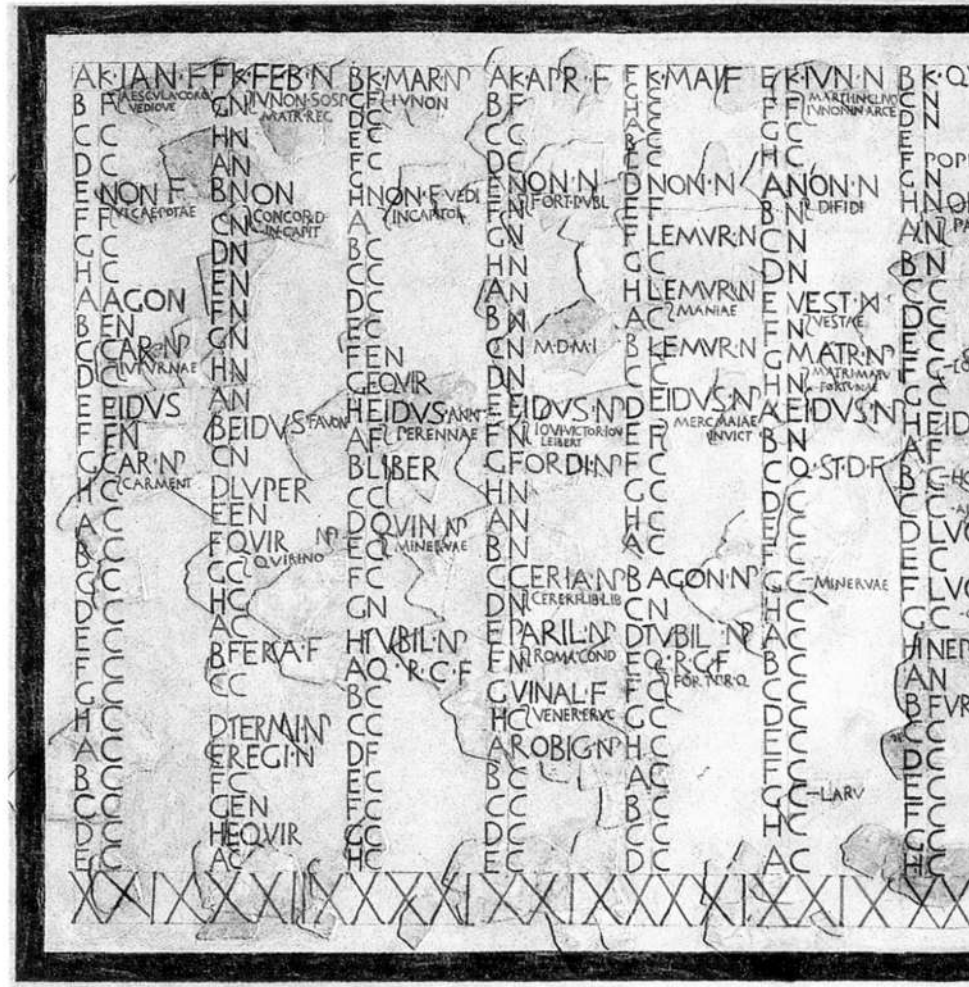 A K·IAN·F
AESCVLA·CORO
B F VEDIOVE
C C
D C
E NON F
VICAE POTAE
F F
G C
H C
A AGON
B EN
C CAR·NP
IVTVRNAE
D C
E EIDVS
F EN
G CAR·NP
H C CARMENT
A C
B C
G C
D C
E C
F C
G C
H C
A C
B C
C C
D C
E C
F K·FEB·N
G N IVNON·SOSP
MATR·REG
H N
A N
B NON
C N CONCORD
IN·CAPIT
D N
E N
F N
G N
H N
A N
B EIDVS FAVON
C N
D LVPER
E EN
F QVIR NP
G C QVIRINO
H C
A C
B FERA·F
C C
D TERMI NP
E REGI·N
F C
G EN
H EQVIR
A C
B K·MAR NP
C F IVNON
D C
E C
F C
G
H NON·F VEDI
IN CAPITOL
A
B C
C C
D C
E C
F EN
G EQVIR
H EIDVS·ANN
A F PERENNAE
B LIBER
C C
D QVIN NP
E C MINERVAE
F C
G N
H TVBIL·NP
A Q·R·C·F
B C
C C
D F
E C
F C
G C
H C
A K·APR·F
B F
C C
D C
E NON·N
F N FORT·PVBL
G N
H N
A N
B N
C N M·D·M·I
D N
E EIDVS·NP
IOVI·VICTOR·IOV
F N LEIBERT
G FORDI·NP
H N
A N
B N
C CERIA·NP
D N CERER·LIB·LIB
E PARIL·NP
F N ROMA·COND
G VINAL·F
H C VENER·ERVC
A ROBIG·NP
B C
C C
D C
E C
F K·MAI·F
G C
H C
A C
B C
C C
D NON·N
E F
F LEMVR·N
G C
H LEMVR·N
A C MANIAE
B LEMVR·N
C C
D EIDVS·NP
MERC·MAIAE
E F INVICT
F C
G C
H C
A C
B AGON·NP
C N
D TVBIL NP
E Q·R·C·F
F C FORTV·P·R·Q
G C
H C
A C
B C
C C
D C
E K·IVN·N
F F MARTI·IN·CLIVO
IVNON·IN·ARCE
G C
H C
A NON·N
B N DI·FIDI
C N
D N
E VEST·N
F N VESTAE
G MATR·NP
H N MATRI·MATV
FORTVNAE
A EIDVS·NP
B N
C Q·ST·D·F
D C
E C
F C
G C MINERVAE
H C
A C
B C
C C
D C
E C
F C
G C LARV
H C
A C
B K·Q
C N
D N
E
F POP
G N
H NO
A N PA
B N
C C
D C
E C
F C
G C
H EID
A F
B C HO
C C
D LVC
E C
F LVC
G C
H NEP
A N
B FVR
C C
D C
E C
F C
G C
H C
XXIX XXIIX XXXI XXIX XXXI XXIX XX